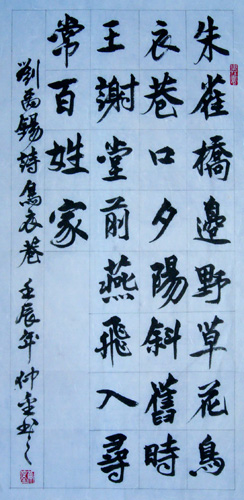 朱雀橋邊野草花烏
衣巷口夕陽斜舊時
王謝堂前燕飛入尋
常百姓家
劉禹錫詩烏衣巷 壬辰年仲書